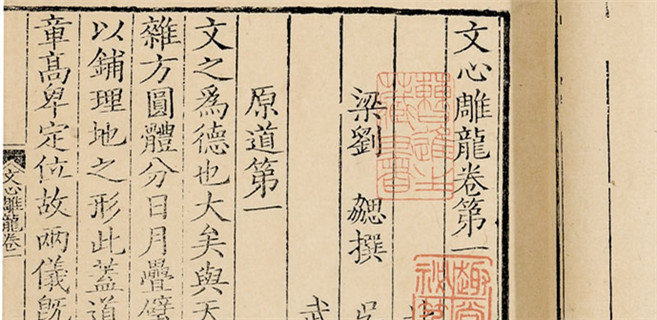 文心雕龍卷第一
梁劉 勰撰
武
原道第一
文之爲德也大矣與天
雜方圓體分日月疊璧
以鋪理地之形此蓋道
章髙卑定位故兩儀旣
文心雕龍卷一